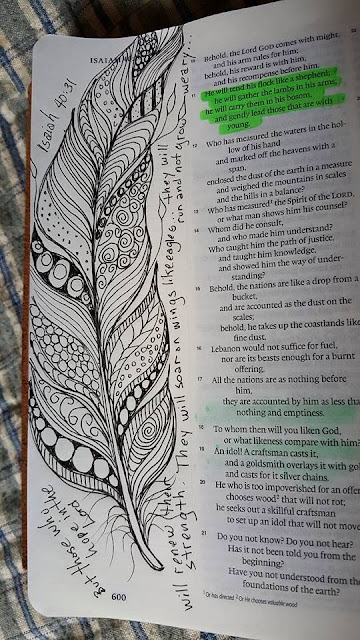 ISAIAH
Isaiah 40:31
But those who
hope in the
Lord
will renew their
strength. They will soar on wings like eagles... they will
run and not grow weary...
10 Behold, the Lord GOD comes with might,
and his arm rules for him;
behold, his reward is with him,
and his recompense before him.
11 He will tend his flock like a shepherd;
he will gather the lambs in his arms;
he will carry them in his bosom,
and gently lead those that are with
young.
12 Who has measured the waters in the hol-
low of his hand
and marked off the heavens with a
span,
enclosed the dust of the earth in a measure
and weighed the mountains in scales
and the hills in a balance?
13 Who has measured¹ the Spirit of the LORD,
or what man shows him his counsel?
14 Whom did he consult,
and who made him understand?
Who taught him the path of justice,
and taught him knowledge,
and showed him the way of under-
standing?
15 Behold, the nations are like a drop from a
bucket,
and are accounted as the dust on the
scales;
behold, he takes up the coastlands like
fine dust.
16 Lebanon would not suffice for fuel,
nor are its beasts enough for a burnt
offering.
17 All the nations are as nothing before
him,
they are accounted by him as less than
nothing and emptiness.
18 To whom then will you liken God,
or what likeness compare with him?
19 An idol! A craftsman casts it,
and a goldsmith overlays it with gold
and casts for it silver chains.
20 He who is too impoverished for an offering
chooses wood² that will not rot;
he seeks out a skillful craftsman
to set up an idol that will not move.
21 Do you not know? Do you not hear?
Has it not been told you from the
beginning?
Have you not understood from the
foundations of the earth?
¹ Or has directed ² Or He chooses valuable wood
600